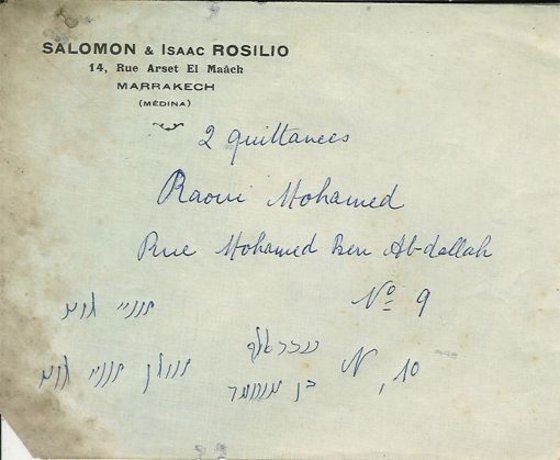 SALOMON & ISAAC ROSILIO
14, Rue Arset El Maâch
MARRAKECH
(MÉDINA)
2 quittances
Raoui Mohamed
Rue Mohamed Ben Abdallah
Nº 9
בן
N, 10